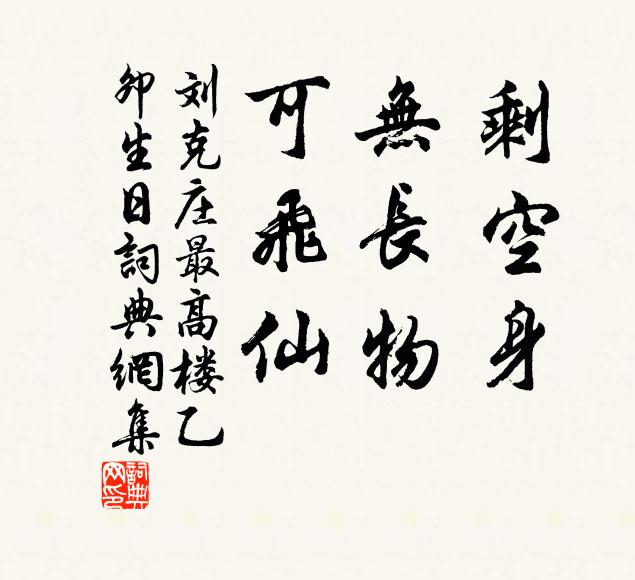 剩空身
無長物
可飛仙
刘克庄最高楼乙
卯生日詞典網集
詞典网印